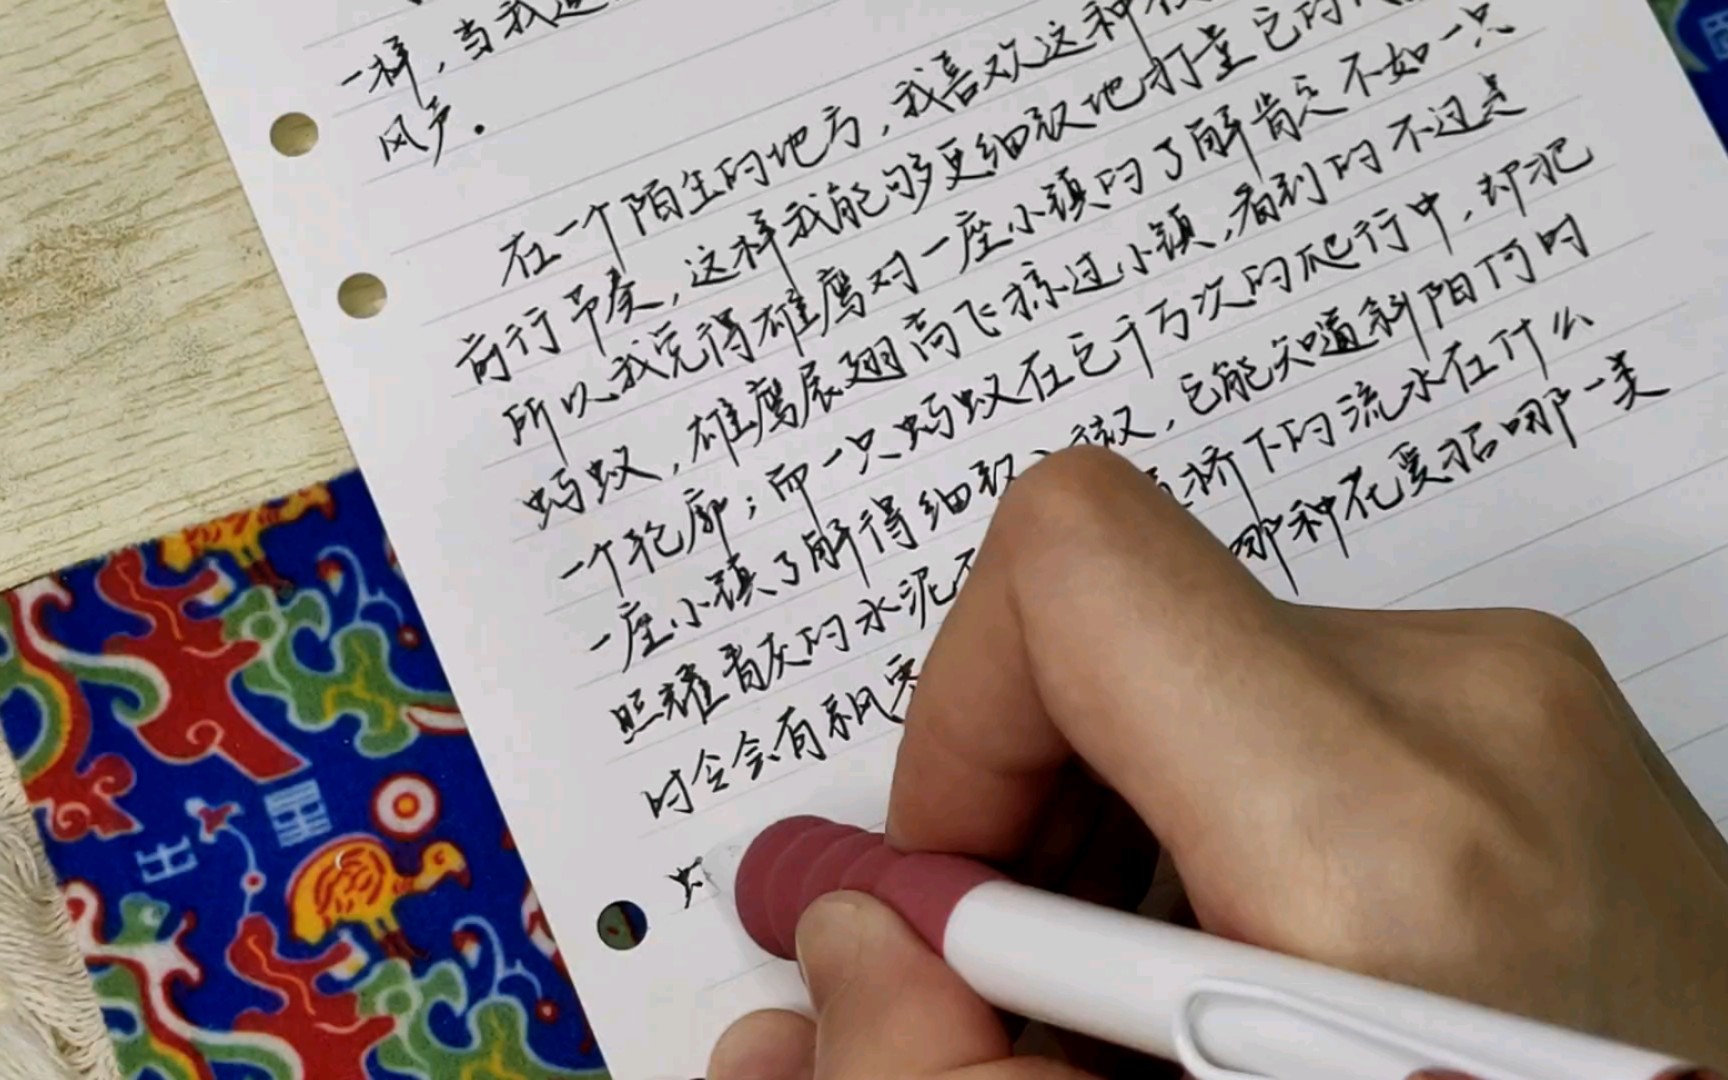 一样，当我
风声。
在一个陌生的地方，我喜欢这种
前行节奏，这样我能够更细致地打量它的
所以我觉得雄鹰对一座小镇的了解肯定不如一只
蚂蚁，雄鹰展翅高飞掠过小镇，看到的不过是
一个轮廓；而一只蚂蚁在它千万次的爬行中，却把
一座小镇了解得细致入微，它能知道斜阳何时
照耀青灰的水泥 桥下的流水在什么
时令会有飘零 哪种花要招哪一类